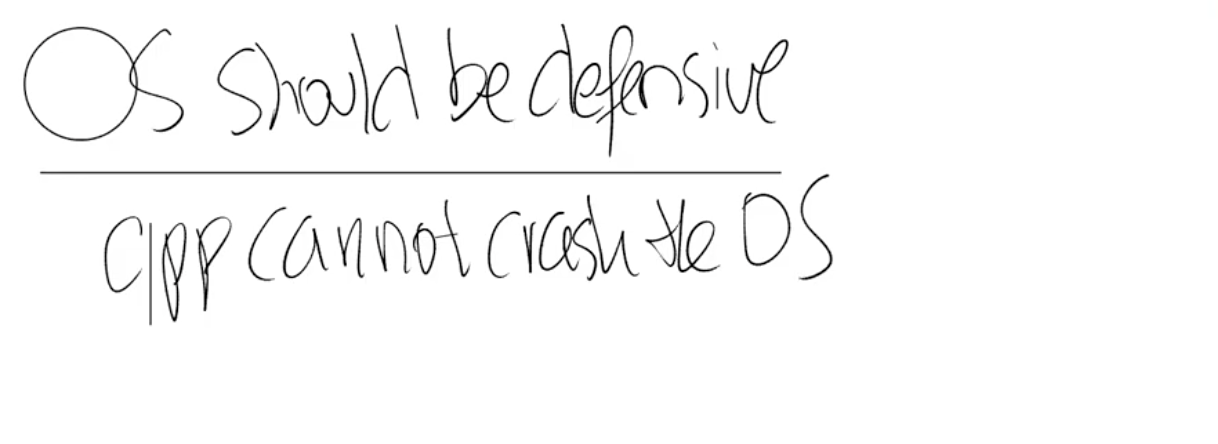 OS should be defensive
app cannot crash the OS